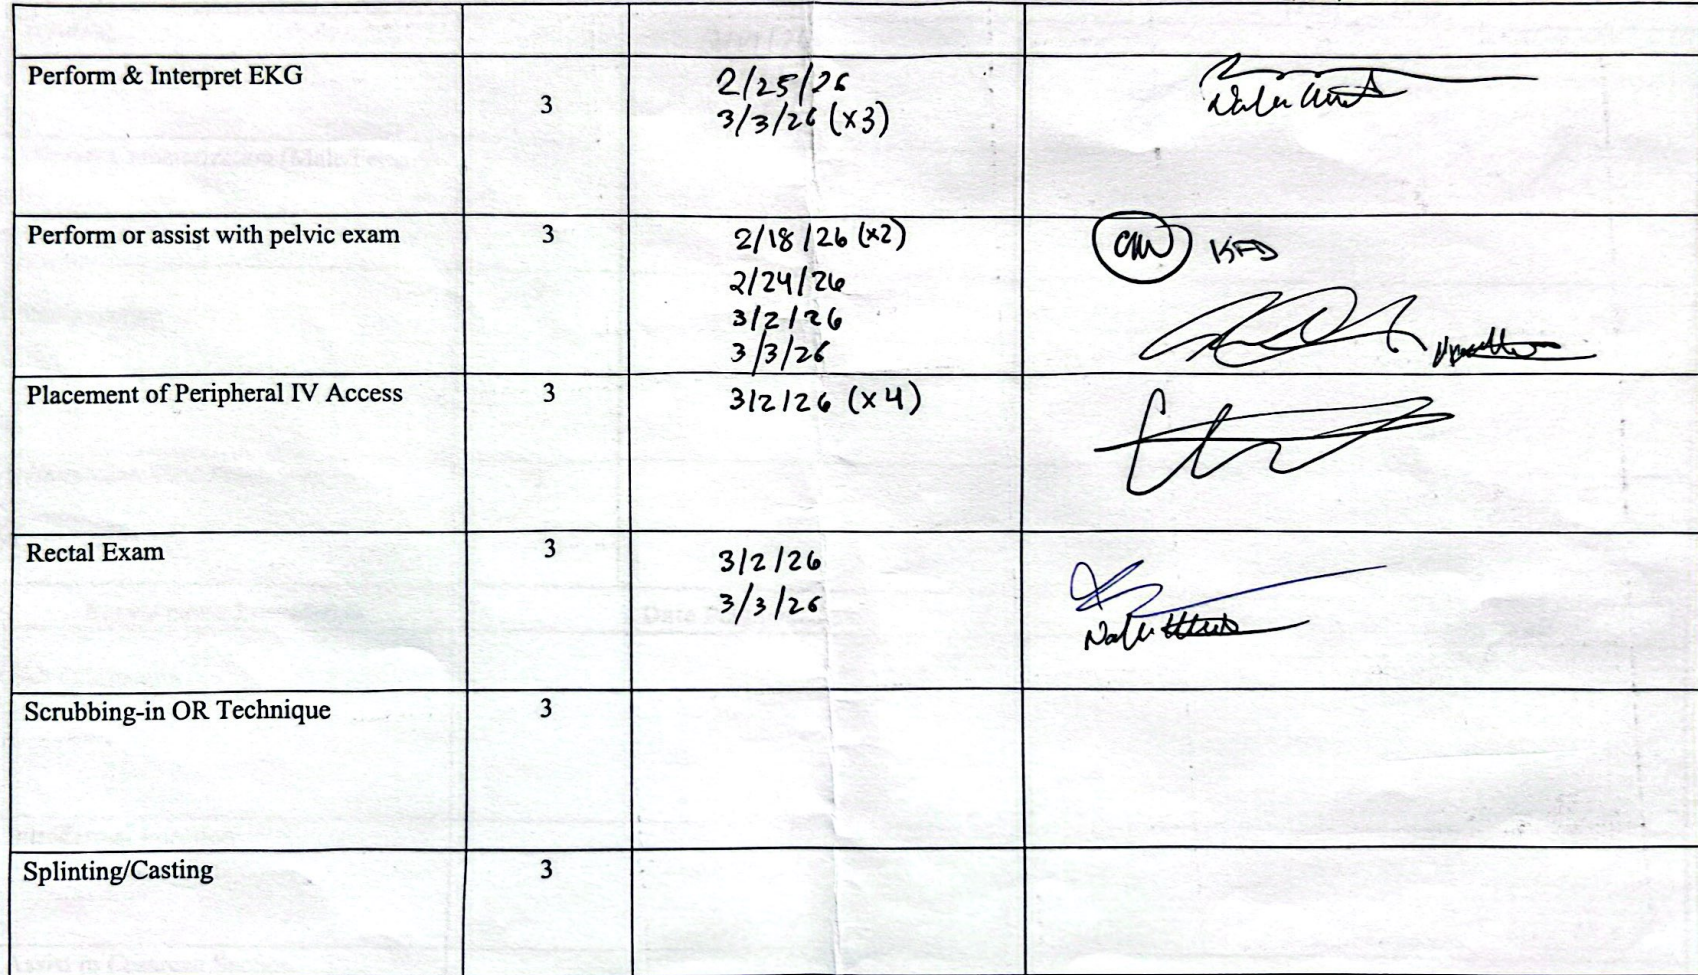 Perform & Interpret EKG
3
2/25/26
3/3/26 (x3)
Perform or assist with pelvic exam
3
2/18/26 (x2)
2/24/26
3/2/26
3/3/26
KFD
Placement of Peripheral IV Access
3
3/2/26 (x4)
Rectal Exam
3
3/2/26
3/3/26
Scrubbing-in OR Technique
3
Splinting/Casting
3